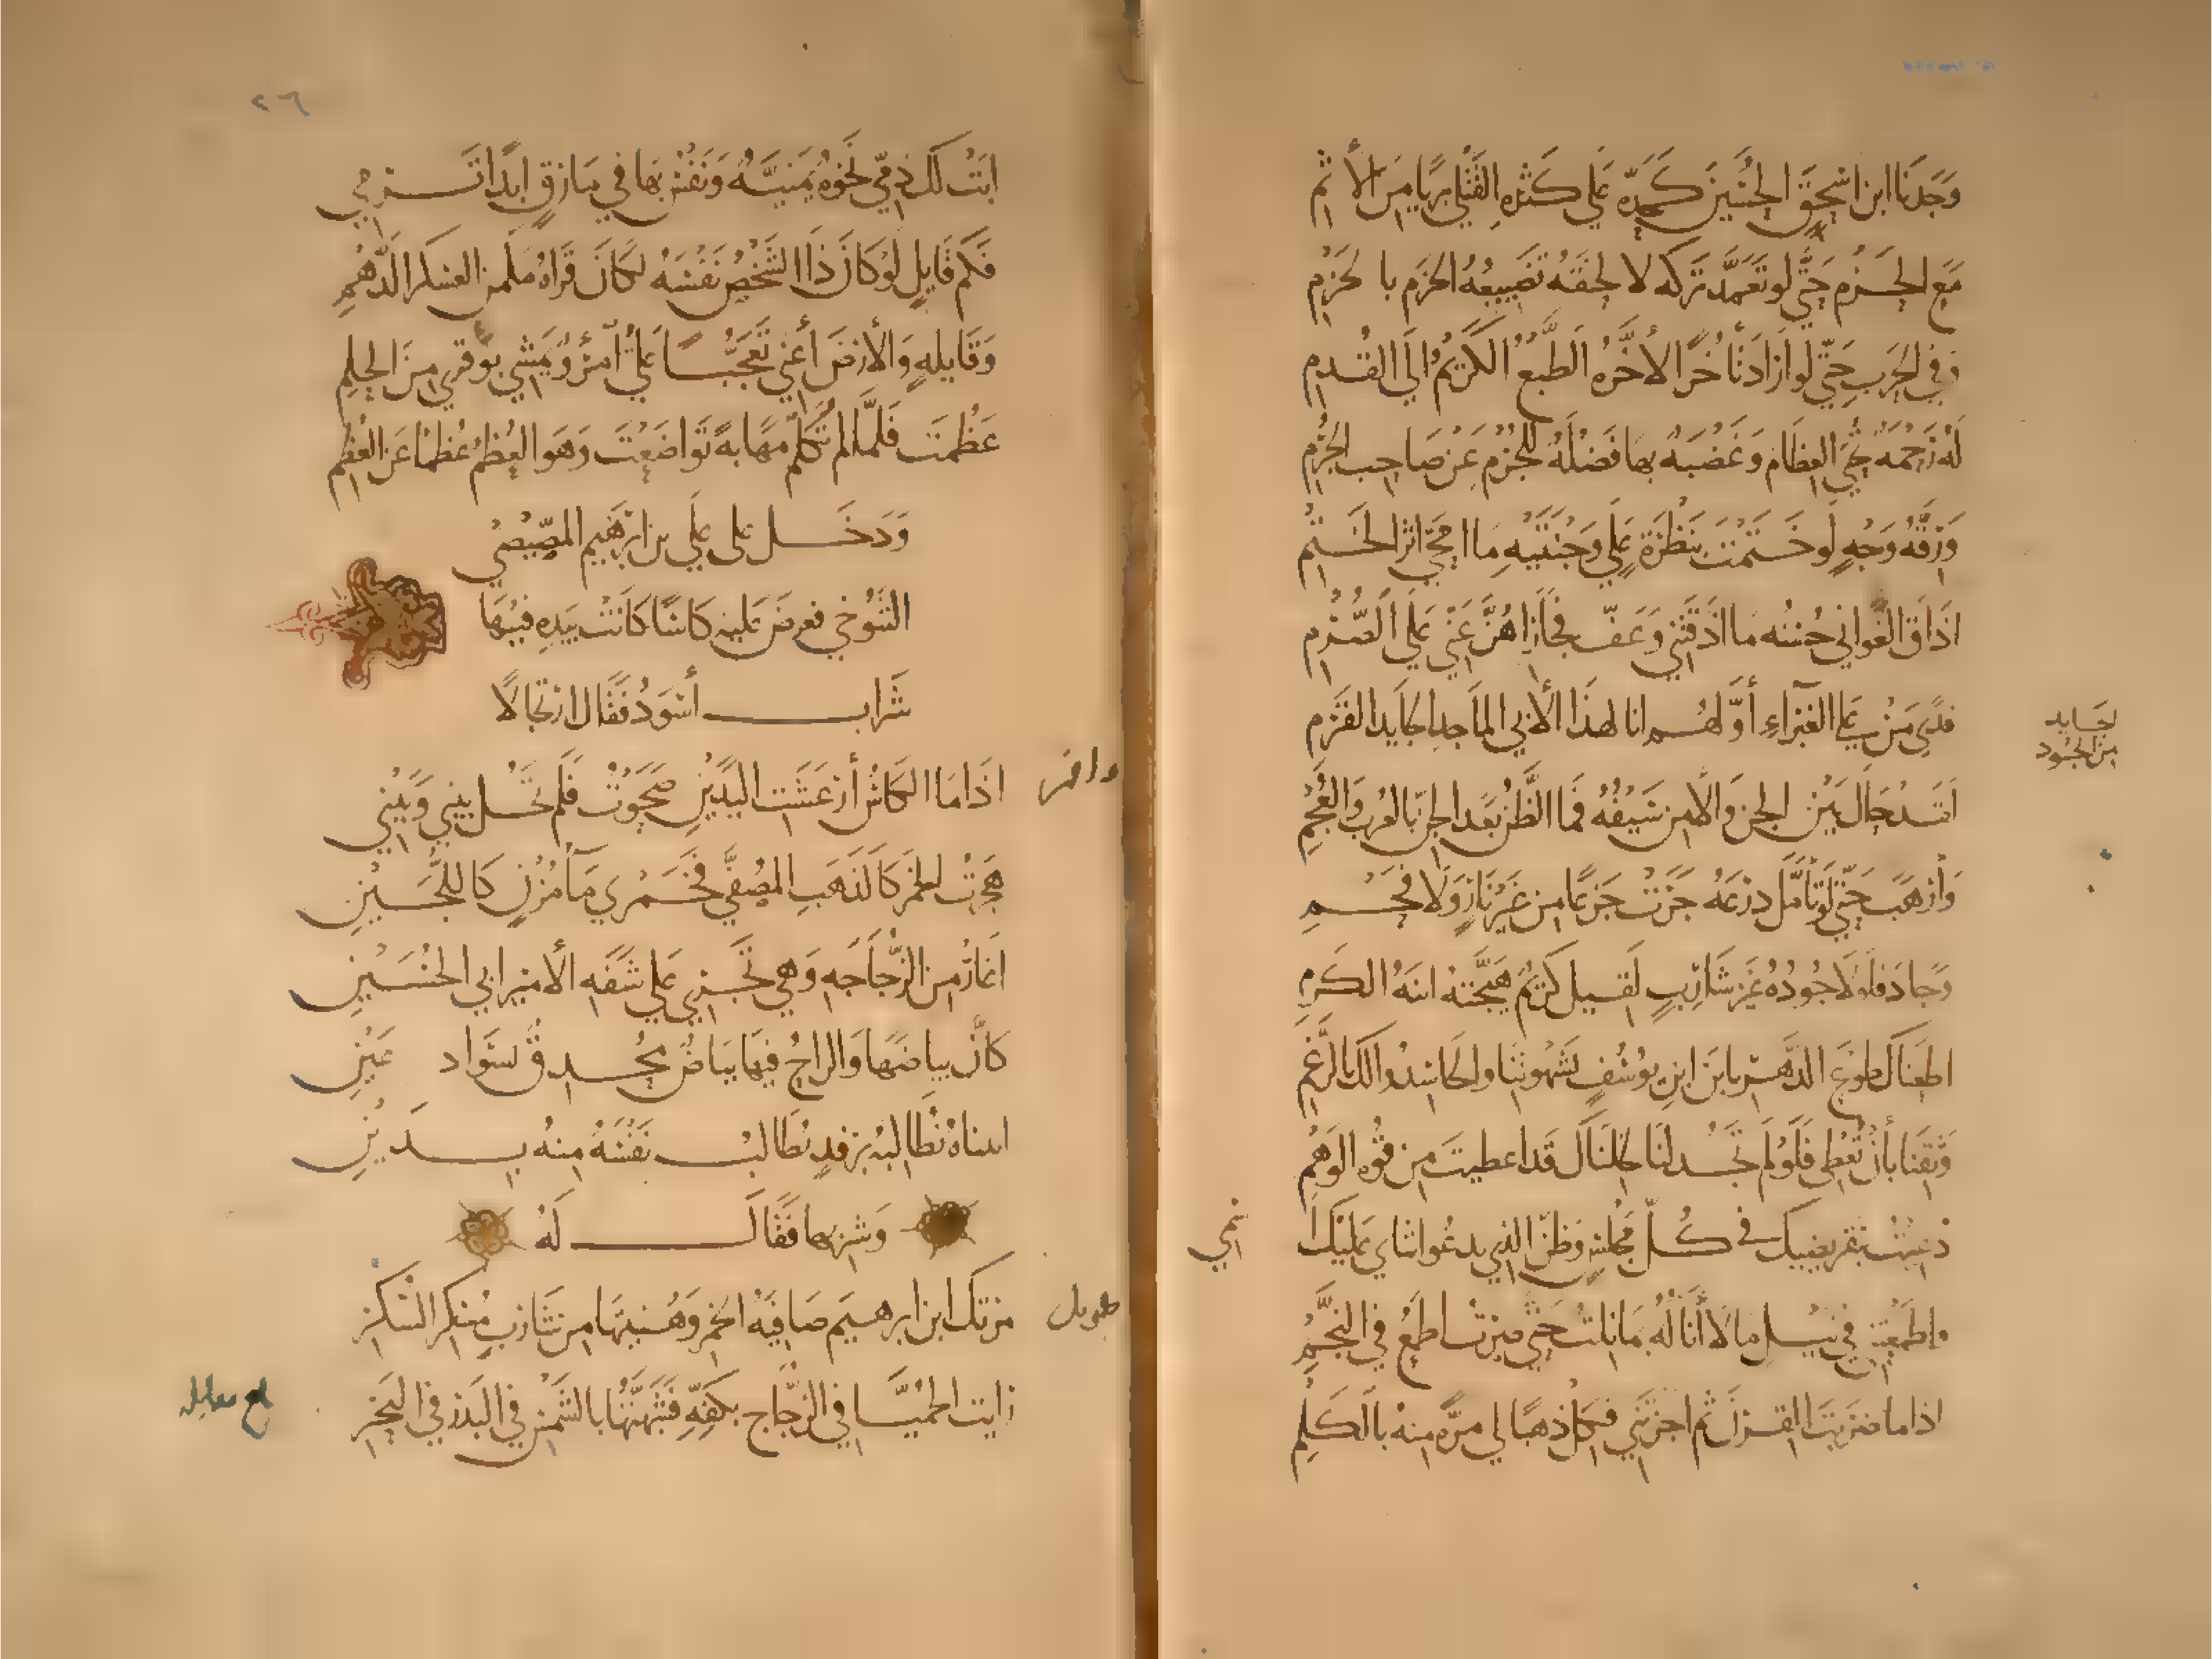 وَجَدنَا ابن اسْحٰقَ الحُسَينَ كَجَدّه عَلى كَثرهِ القَتْلى بريًا مِنَ الأثم
مَعَ الحَزْم حَتَّى لو تَعَمَّدَ تَركه لالحقَهُ تَضييعُهُ الحَزم بالحَزْمِ
وَفي الحَربِ حَتّى لو ارَادَ تَأخُّرًا لأخَّرَهُ الطَّبعُ الكَريمُ الى القُدمِ
لَهُ رَحْمَهٌ تُحيي العِظَامَ وَغَضْبَهٌ بهَا فَضْلَهٌ للجُرْمِ عَنْ صَاحِب الجُرْمِ
وَرِقَّهُ وَجْهٍ لَو خَتَمْتَ بنَظْرَةٍ عَلى وَجْنَتَيْهِ مَا امحَى اثرُ الخَتْمِ
اذَاقَ الغَواني حُسْنُه مَا اذَقْنَني وَعَفّ فجَازاهُنَّ عَنّي عَلَى الصُّرْمِ
فدًى مَنْ عَلى الغَبْرَاءِ أوَّلهُم انا لهذَا الأبي المَاجدِ الجَايدِ القَرْمِ
لجَايد
مِنَ الجُود
لقَد حَالَ بَيْنَ الجن وَالامن سَيْفُهُ فَما الظَّنُّ بَعْدَ الجنّ بالعُرب وَالعُجْمِ
وَأرْهَبَ حَتّى لَو تَأمَّلَ دِرْعَهُ جَرَتْ جَزعًا من غَيْر نَارٍ وَلَا فَحْمِ
وَجادَ فَلَولَا جُودُهُ غَيْرَ شَارِبٍ لَقيل كَريمٌ هَيَّجَتْهُ ابنَهُ الكَرمِ
اطعْنَاكَ طَوْعَ الدَّهْر يابنَ ابنِ يُوسُفٍ بشَهْوتنَا والحَاسدُو الكَ بالرَّغْمِ
وَثقنَا بأنْ تُعْطى فَلَوْ لَم تَجُدْ لنَا لخلنَاكَ قَد اعطيتَ من قُوه الوَهْمِ
دُعيتُ بتَقريضيكَ في كُلّ مَجْلسٍ وَظَنّ الذي يدعُو اثناي عَلَيْكَ اسْمي
وَاطمَعتَني في نَيْلِ ما لَا أنَالُهُ بمَا نِلتُ حَتّى صِرْتُ اطمَعُ في النَّجْمِ
اذا ما ضَرَبتَ القرْنَ ثم اجَزْتَني فَكِلْ ذهبًا لي مرّه منهُ بالكَلْمِ
٢٦
ابَتْ لكَ ذَمّي نَخْوَهٌ يَمَنيَّهٌ وَنَفْسٌ بهَا في مَازقٍ ابَدًا تَرمي
فَكَم قَايلٍ لو كَانَ ذَا الشَّخْصِ نَفْسَهُ لكَانَ قَرَاهُ مَكْمَن العَسكَر الدَّهْمِ
وَقَايلهٍ وَالأرْضَ أعْني تَعَجُّبًا عَليَّ امْرُؤٌ يَمْشي بوَقري مِنَ الحِلمِ
عَظُمْتَ فَلَمَّا لم تُكَلَّم مَهَابهً تَوَاضَعْتَ وَهوَ العُظْمُ عُظمًا عَن العُظْمِ
وَدَخَل على عَلي بن ابرَهيم المصّيْصيْ
التَنُوخي فعرضَ عَليه كَاسًا كَانَتْ بيَدِهِ فيْهَا
شَراب أسْوَدُ فَقَال ارتجَالًا
وافر
اذَا مَا الكَاسُ أرْعَشَت اليَدَيْنِ صَحَوْتُ فَلَم تَحُل بيني وَبَيْني
هَجَرْتُ الخمْرَ كَالذَهَبِ المُصَفَّى فَخَمْري مَآءُ مُزْنٍ كَاللُّجَيْنِ
اغَارُ منَ الزُجَاجَه وَهي تَجْري عَلى شَفَهِ الأمير ابي الحُسَيْنِ
كَأنَّ بياضَهَا وَالراحُ فيهَا بيَاضٌ مُحْدِقٌ بسَوَاد عَيْنِ
اتيناهُ نُطَالبُهُ برفدٍ نُطَالبُ نَفْسَهُ منهُ بِدَيْنِ
وَشَربهَا فَقَالَ لَهُ
طويل
مَرَتكَ ابن ابرهيمَ صَافِيَهُ الخمر وَهُنيتهَا من شَاربٍ مُسكر السُّكْرِ
رَايت الحُمَيَّا في الزّجَاج بكَفّهِ فَشَبَّهْتُهَا بالشَّمْسِ في البَدْرِ في البَحْرِ
بلغ مقابله